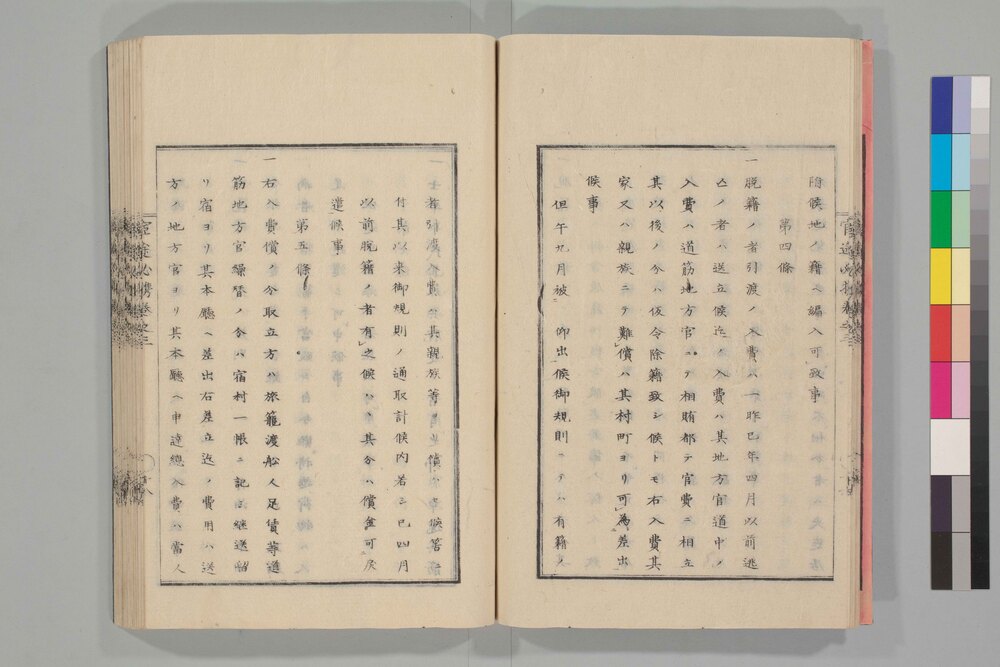 陪候地ノ籍ニ編入可致事
第四條
一脱籍ノ者引渡ノ入費ハ一昨巳年四月以前逃
亡ノ者ハ送立候迄ノ入費ハ其地方官道中ノ
入費ハ道筋地方官ニテ相賄都テ官費ニ相立
其以後ノ分ハ仮令除籍致シ候トモ右入費其
家又ハ親族ニテ難償ハ其村町ヨリ可為差出
候事
但午九月被 仰出候御規則ニテハ有籍ノ
者引渡入費ハ其親族等ヨリ償ハ申候筈
付其以来御規則ノ通取計候内若シ巳四月
以前脱籍ノ者有之候ハヽ其分ハ償金可戻
遣候事
第五條
一右入費償金取立方ハ旅籠渡船人足賃等道
筋地方官繰替ノ分ハ宿村一帳ニ記シ継送留
リ宿ヨリ其本廳ヘ差出右差立迄ノ費用ハ送
方ノ地方官ヨリ其本廳ヘ申達總入費ハ當人